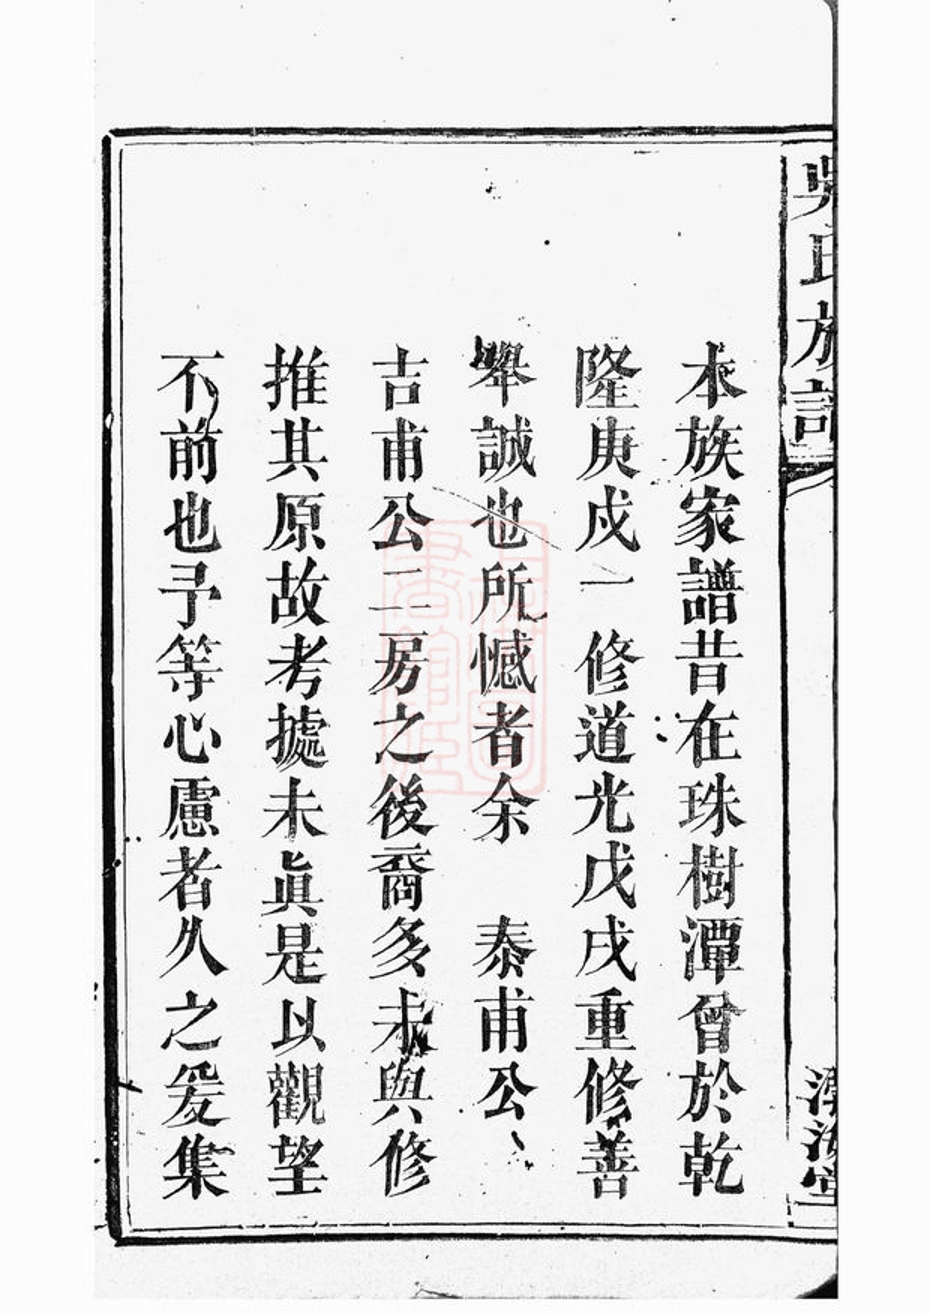 吳氏族譜
本族家譜昔在珠樹潭曾於乾
隆庚戌一 修道光戊戌重修善
舉誠也所憾者余 泰甫公
吉甫公二房之後裔多未與修
推其原故考據未眞是以觀望
不前也予等心慮者久之爰集